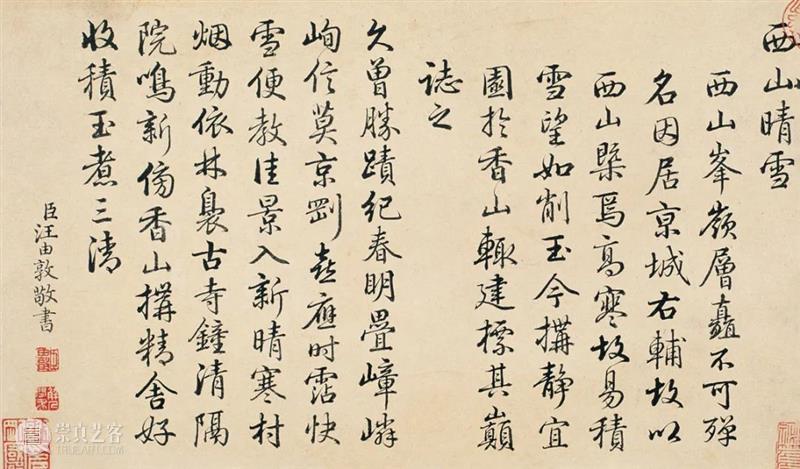 西山晴雪
西山峯嶺層矗不可殫
名因居京城右輔故以
西山槩焉高寒故易積
雪望如削玉今搆静宜
園於香山輙建標其巔
誌之
久曾勝蹟紀春明疊嶂嶙
峋信莫京剛喜應时霑快
雪便教佳景入新晴寒村
烟動依林裊古寺鐘清隔
院鳴新傍香山搆精舍好
收積玉煮三清
臣汪由敦敬書
崇真艺客